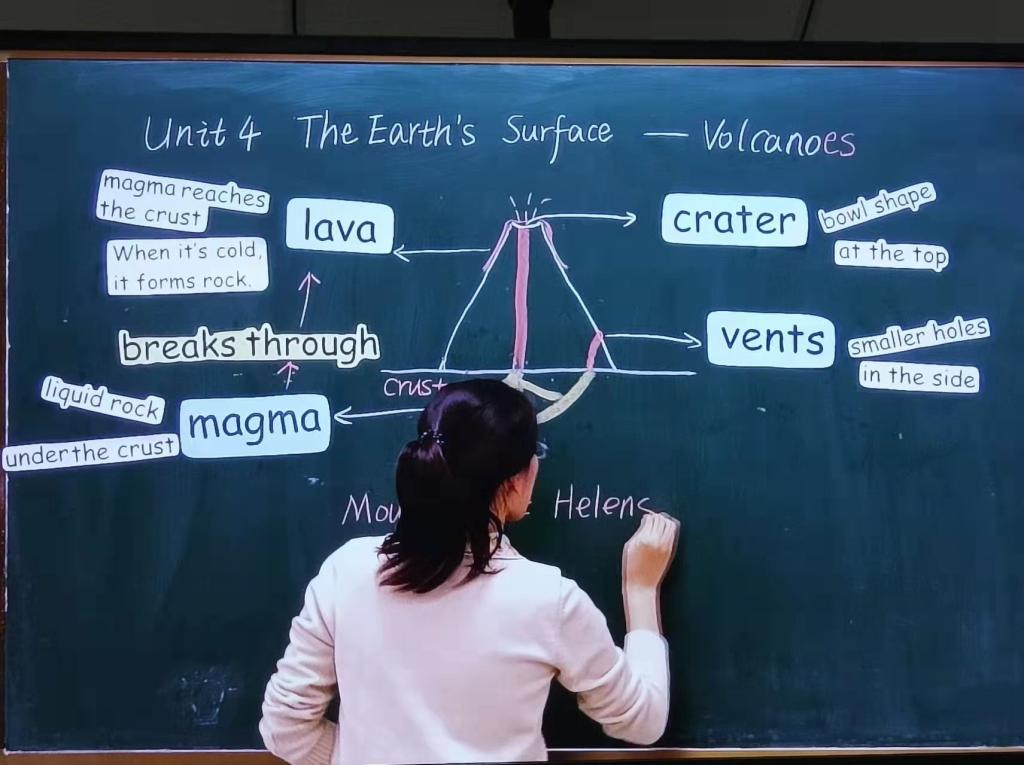 Unit 4 The Earth's Surface — Volcanoes
magma reaches
the crust
When it's cold,
it forms rock.
lava
crater
bowl shape
at the top
breaks through
vents
smaller holes
in the side
crust
liquid rock
under the crust
magma
Helens